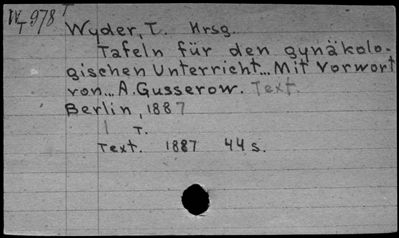 W T 978 T
Wyder, T. Hrsg.
Tafeln für den gynäkolo-
gischen Unterricht... Mit Vorwort
von... A. Gusserow. Text.
Berlin, 1887
1 T.
Text. 1887 44 s.